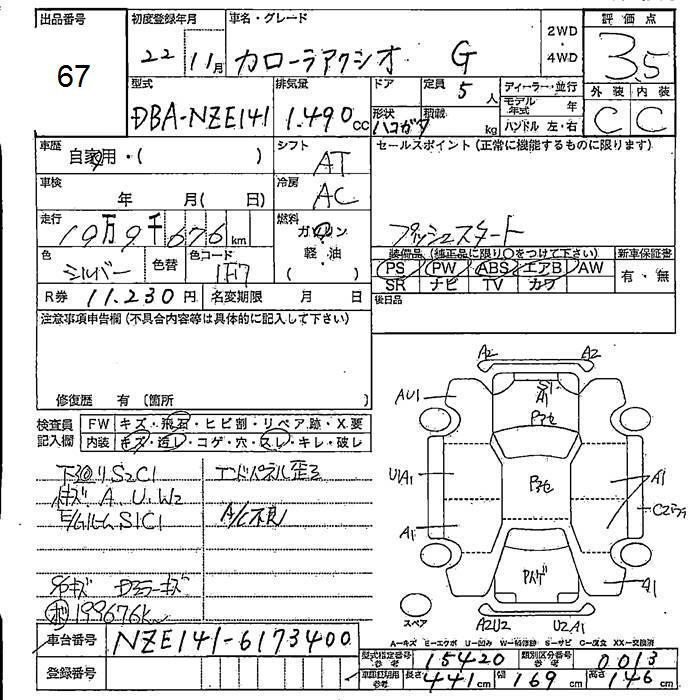 出品番号 初度登録年月 車名・グレード 2WD・4WD 評価点
67 22 11月 カローラアクシオ G 3.5
型式 排気量 ドア 定員 5人 ディーラー・並行 外装 内装
DBA-NZE141 1.490cc 形状 ハコガタ 積載 kg モデル年式 年 ハンドル 左・右 C C
車歴 自家用・( ) シフト AT セールスポイント(正常に機能するものに限ります)
車検 年 月( 日) 冷房 AC
走行 19万9千676km 燃料 ガソリン 軽・油 ( ) プッシュスタート
色 シルバー 色替 色コード 1F7
装備品(純正品に限り○をつけて下さい) 新車保証書
PS PW ABS エアB AW 有・無
SR ナビ TV カワ
R券 11.230円 名変期限 月 日 後日品
注意事項申告欄(不具合内容等は具体的に記入して下さい)
修復歴 有(箇所 )
検査員記入欄 FW キズ・飛石・ヒビ割・リペア跡・X.要
内装 キズ・汚レ・コゲ・穴・スレ・キレ・破レ
下廻りS2C1 エンドパネル歪ミ
キズ A.U.W2
S1C1 A/C不良
外キズ Dミラーキズ
199676km
車台番号 NZE141-6173400
登録番号
A2 A2
AU1 S1 A1 Pアセ
U1A1 Pアセ A1
A1
Pハゲ A1
スペア A2U2 U2A1
A=キズ E=エクボ U=凹み W=補修跡 S=サビ C=腐食 XX=交換済
型式指定番号 参考 15420 類別区分番号 参考 0013
車庫証明用 参考 長さ 441cm 幅 169cm 高さ 146cm